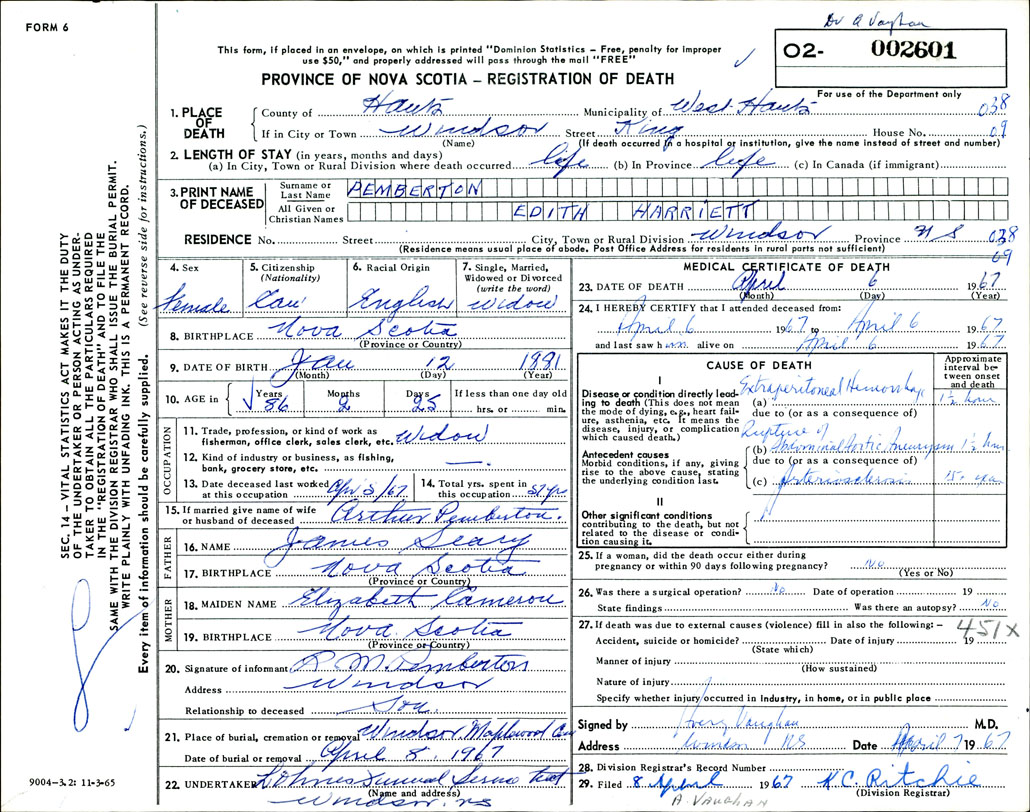 Dr A Vaughan
FORM 6
This form, if placed in an envelope, on which is printed "Dominion Statistics – Free, penalty for improper
use $50," and properly addressed will pass through the mail "FREE"
O2- 002601
For use of the Department only
PROVINCE OF NOVA SCOTIA – REGISTRATION OF DEATH
1. PLACE OF DEATH
County of Hants Municipality of West Hants 038
If in City or Town Windsor Street King House No. 09
(Name) (If death occurred in a hospital or institution, give the name instead of street and number)
2. LENGTH OF STAY (in years, months and days)
(a) In City, Town or Rural Division where death occurred life (b) In Province life (c) In Canada (if immigrant)
3. PRINT NAME OF DECEASED
Surname or Last Name PEMBERTON
All Given or Christian Names EDITH HARRIETT
RESIDENCE No. Street City, Town or Rural Division Windsor Province N S 038
(Residence means usual place of abode. Post Office Address for residents in rural parts not sufficient) 09
4. Sex Female
5. Citizenship (Nationality) Can
6. Racial Origin English
7. Single, Married, Widowed or Divorced (write the word) Widow
8. BIRTHPLACE Nova Scotia
(Province or Country)
9. DATE OF BIRTH Jan 12 1881
(Month) (Day) (Year)
10. AGE in Years 86 Months 2 Days 25 If less than one day old hrs. or min.
OCCUPATION
11. Trade, profession, or kind of work as
fisherman, office clerk, sales clerk, etc. Widow
12. Kind of industry or business, as fishing,
bank, grocery store, etc. —
13. Date deceased last worked at this occupation Apr 5/67
14. Total yrs. spent in this occupation 57 yr
15. If married give name of wife
or husband of deceased Arthur Pemberton.
FATHER
16. NAME James Seary
17. BIRTHPLACE Nova Scotia
(Province or Country)
MOTHER
18. MAIDEN NAME Elizabeth Cameron
19. BIRTHPLACE Nova Scotia
(Province or Country)
20. Signature of informant R. M. Pemberton
Address Windsor
Relationship to deceased Son
21. Place of burial, cremation or removal Windsor, Maplewood Cem
Date of burial or removal April 8, 1967
22. UNDERTAKER Funeral
(Name and address)
Windsor, NS
MEDICAL CERTIFICATE OF DEATH
23. DATE OF DEATH April 6 1967
(Month) (Day) (Year)
24. I HEREBY CERTIFY that I attended deceased from:
April 6 1967 to April 6 1967
and last saw h alive on April 6 1967
CAUSE OF DEATH
Approximate interval between onset and death
I
Disease or condition directly leading to death (This does not mean the mode of dying, e.g., heart failure, asthenia, etc. It means the disease, injury, or complication which caused death.)
(a) Extraperitoneal Hemorrhage 1½ hour
due to (or as a consequence of)
Rupture of
(b) Abdominal Aortic Aneurysm 1½ hour
Antecedent causes
Morbid conditions, if any, giving rise to the above cause, stating the underlying condition last.
due to (or as a consequence of)
(c) Arteriosclerosis 15 year
II
Other significant conditions
contributing to the death, but not related to the disease or condition causing it.
25. If a woman, did the death occur either during
pregnancy or within 90 days following pregnancy? No
(Yes or No)
26. Was there a surgical operation? No Date of operation 19
State findings Was there an autopsy? No
27. If death was due to external causes (violence) fill in also the following: – 451X
Accident, suicide or homicide? Date of injury 19
(State which)
Manner of injury
(How sustained)
Nature of injury
Specify whether injury occurred in industry, in home, or in public place
Signed by Vaughan M.D.
Address Windsor NS Date April 7 1967
28. Division Registrar's Record Number
29. Filed 8 April 1967 K.C. Ritchie
(Division Registrar)
A. VAUGHAN
9004–3.2: 11-3-65
SEC. 14 – VITAL STATISTICS ACT MAKES IT THE DUTY
OF THE UNDERTAKER OR PERSON ACTING AS UNDER-
TAKER TO OBTAIN ALL THE PARTICULARS REQUIRED
IN THE "REGISTRATION OF DEATH" AND TO FILE THE
SAME WITH THE DIVISION REGISTRAR WHO SHALL ISSUE THE BURIAL PERMIT.
WRITE PLAINLY WITH UNFADING INK. THIS IS A PERMANENT RECORD.
Every item of information should be carefully supplied. (See reverse side for instructions.)